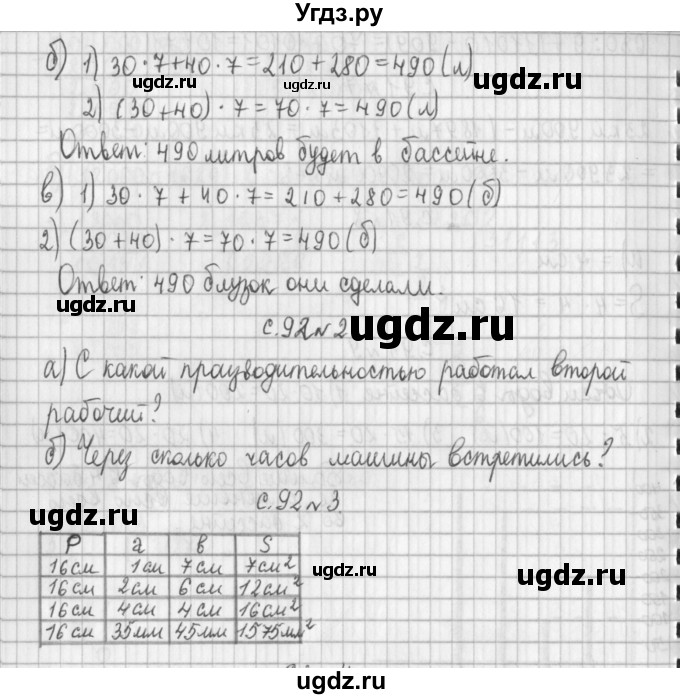 Угдз.ру
б) 1) 30·7+40·7=210+280=490(л)
ugdz.ru ugdz.ru
2) (30+40)·7=70·7=490(л)
Ответ: 490 литров будет в бассейне.
ugdz.ru
в) 1) 30·7+40·7=210+280=490(б)
2) (30+40)·7=70·7=490(б)
Ответ: 490 блузок они сделали.
ugdz.ru
с.92 №2
ugdz.ru
а) С какой праизводительностью работал второй
рабочий?
б) Через сколько часов машины встретились?
ugdz.ru ugdz.ru
с.92 №3.
ugdz.ru
P a в S
16см 1см 7см 7см²
16см 2см 6см 12см²
16см 4см 4см 16см²
16см 35мм 45мм 1575мм²
ugdz.ru
ugdz.ru
ugdz.ru